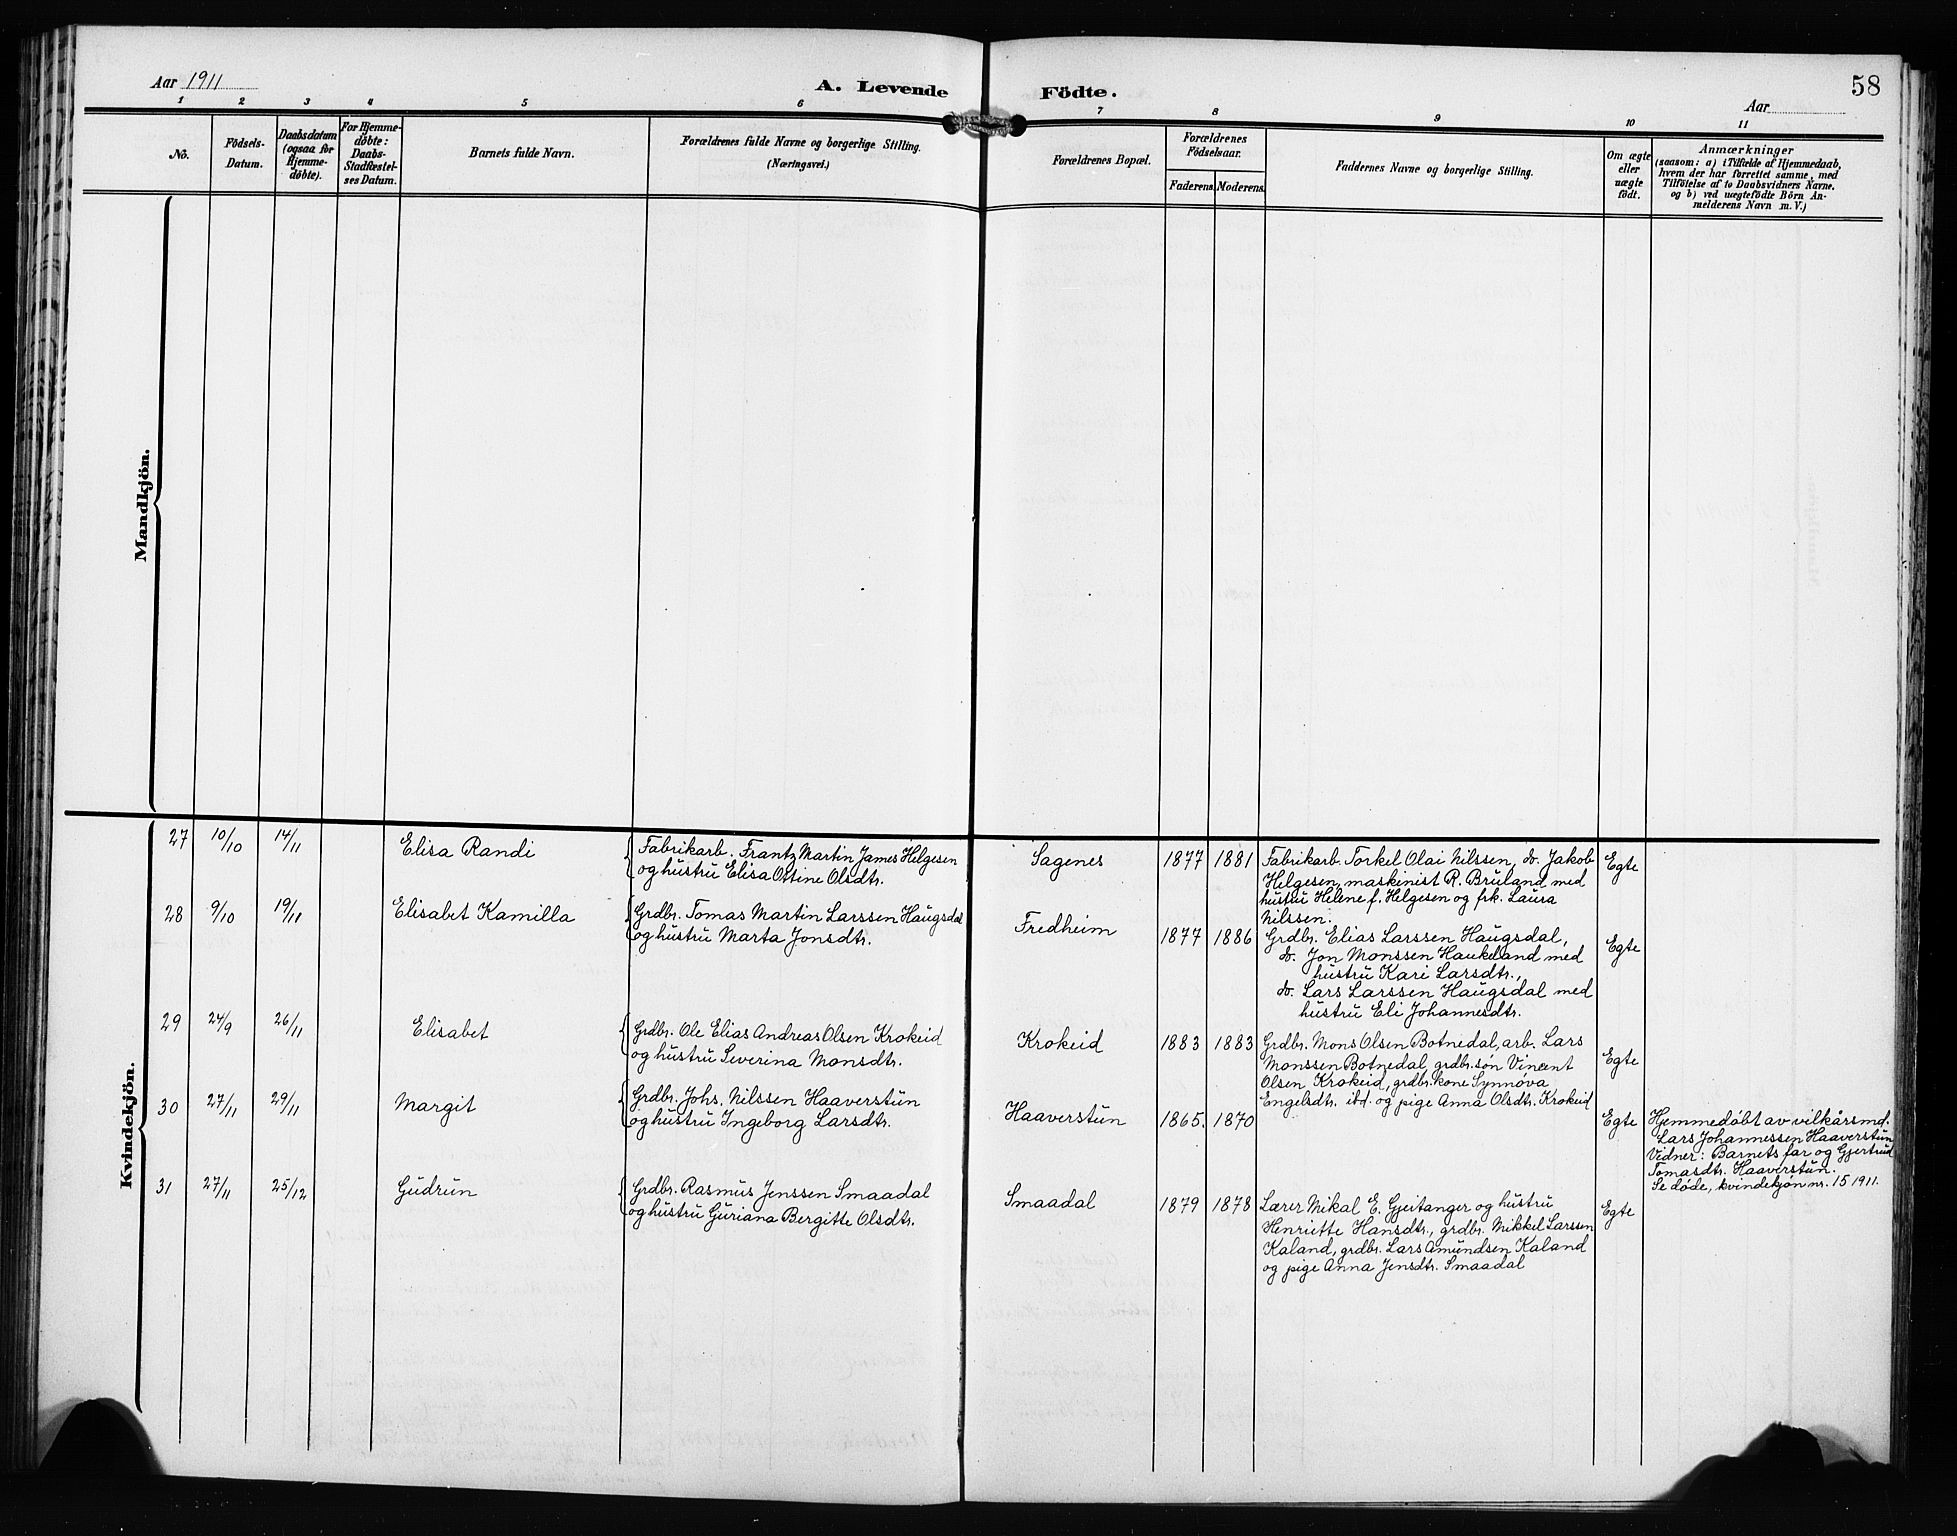 Aar 1911
A. Levende Födte.
58
Aar
1 2 3 4 5 6 7 8 9 10 11
No.
Födsels-
Datum.
Daabsdatum
(ogsaa for
Hjemme-
döbte).
For Hjemme-
döbte:
Daabs-
Stadfæstel-
ses Datum.
Barnets fulde Navn.
Forældrenes fulde Navne og borgerlige Stilling.
(Næringsvei.)
Forældrenes Bopæl.
Forældrenes
Födselsaar.
Faderens. Moderens.
Faddernes Navne og borgerlige Stilling.
Om ægte
eller
uægte
födt.
Anmærkninger
(saasom: a) i Tilfælde af Hjemmedaab,
hvem der har forrettet samme, med
Tilföielse af to Daabsvidners Navne,
og b) ved uægtefödte Börn An-
melderens Navn m. V.)
Mandkjön.
Kvindekjön.
27 10/10 14/11 Elisa Randi
Fabrikarb. Frantz Martin James Helgesen
og hustru Elisa Ottine Olsdtr.
Sagenes 1877 1881
Fabrikarb. Torkel Olai Nilssen, do. Jakob
Helgesen, maskinist R. Bruland med
hustru Helene f. Helgesen og frk. Laura
Nilssen.
Egte
28 9/10 19/11 Elisabet Kamilla
Grdbr. Tomas Martin Larssen Haugsdal
og hustru Marta Jonsdtr.
Fredheim 1877 1886
Grdbr. Elias Larssen Haugsdal,
do. Jon Monssen Haukeland med
hustru Kari Larsdtr.,
do. Lars Larssen Haugsdal med
hustru Eli Johannesdtr.
Egte
29 24/9 26/11 Elisabet
Grdbr. Ole Elias Andreas Olsen Krokeid
og hustru Severina Monsdtr.
Krokeid 1883 1883
Grdbr. Mons Olsen Botnedal, arb. Lars
Monssen Botnedal, grdbr.søn Vincent
Olsen Krokeid, grdbr.kone Synnøva
Engelsdtr. ibd. og pige Anna Olsdtr. Krokeid
Egte
30 27/11 29/11 Margit
Grdbr. Johs. Nilssen Haaverstun
og hustru Ingeborg Larsdtr.
Haaverstun 1865. 1870
Egte
Hjemmedøbt av vilkårsmd.
Lars Johannessen Haaverstun
Vidner: Barnets far og Gjertrud
Tomasdtr. Haaverstun.
Se døde, kvindekjøn nr. 15 1911.
31 27/11 25/12 Gudrun
Grdbr. Rasmus Jenssen Smaadal
og hustru Guriana Bergitte Olsdtr.
Smaadal 1879 1878
Lærer Mikal E. Gjeitanger og hustru
Henriette Hansdtr., grdbr. Mikkel Larssen
Kaland, grdbr. Lars Amundsen Kaland
og pige Anna Jensdtr. Smaadal
Egte